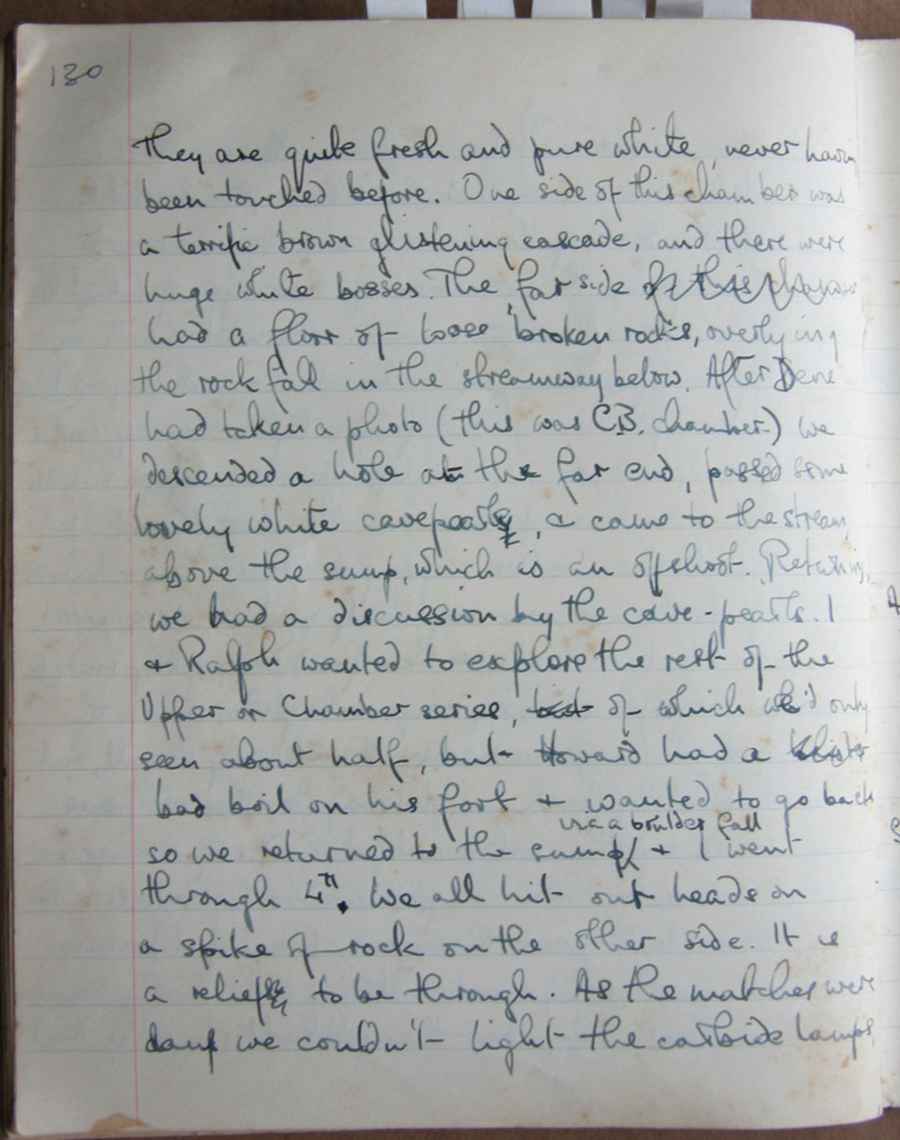 130
They are quite fresh and pure white, never having
been touched before. One side of this chamber was
a terrific brown glistening cascade, and there were
huge white bosses. The far side of this
had a floor of loose broken rocks, overlying
the rock fall in the streamway below. After Dene
had taken a photo (this was C.B. chamber.) we
descended a hole at the far end, passed some
lovely white cavepearls, & came to the stream
above the sump, which is an offshoot. Returning,
we had a discussion by the cave-pearls. I
& Ralph wanted to explore the rest of the
Upper or Chamber series, but of which we'd only
seen about half, but Howard had a blister
bad boil on his foot & wanted to go back
via a boulder fall
so we returned to the sump & I went
through 4th. We all hit our heads on
a spike of rock on the other side. It is
a relief to be through. As the matches were
damp we couldn't light the carbide lamps